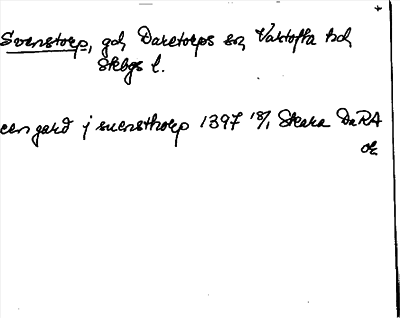 Svenstorp, gd, Daretorps sn, Vartofta hd,
Skbgs l.
een gard j suensthorp 1397 18/1 Skara DaRA
or